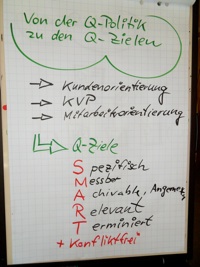 Von der Q-Politik
zu den Q-Zielen
Kundenorientierung
KVP
Mitarbeitorientierung
Q-Ziele
Spezifisch
Messbar
Achivable, Angemess
Relevant
Terminiert
+ Konfliktfrei